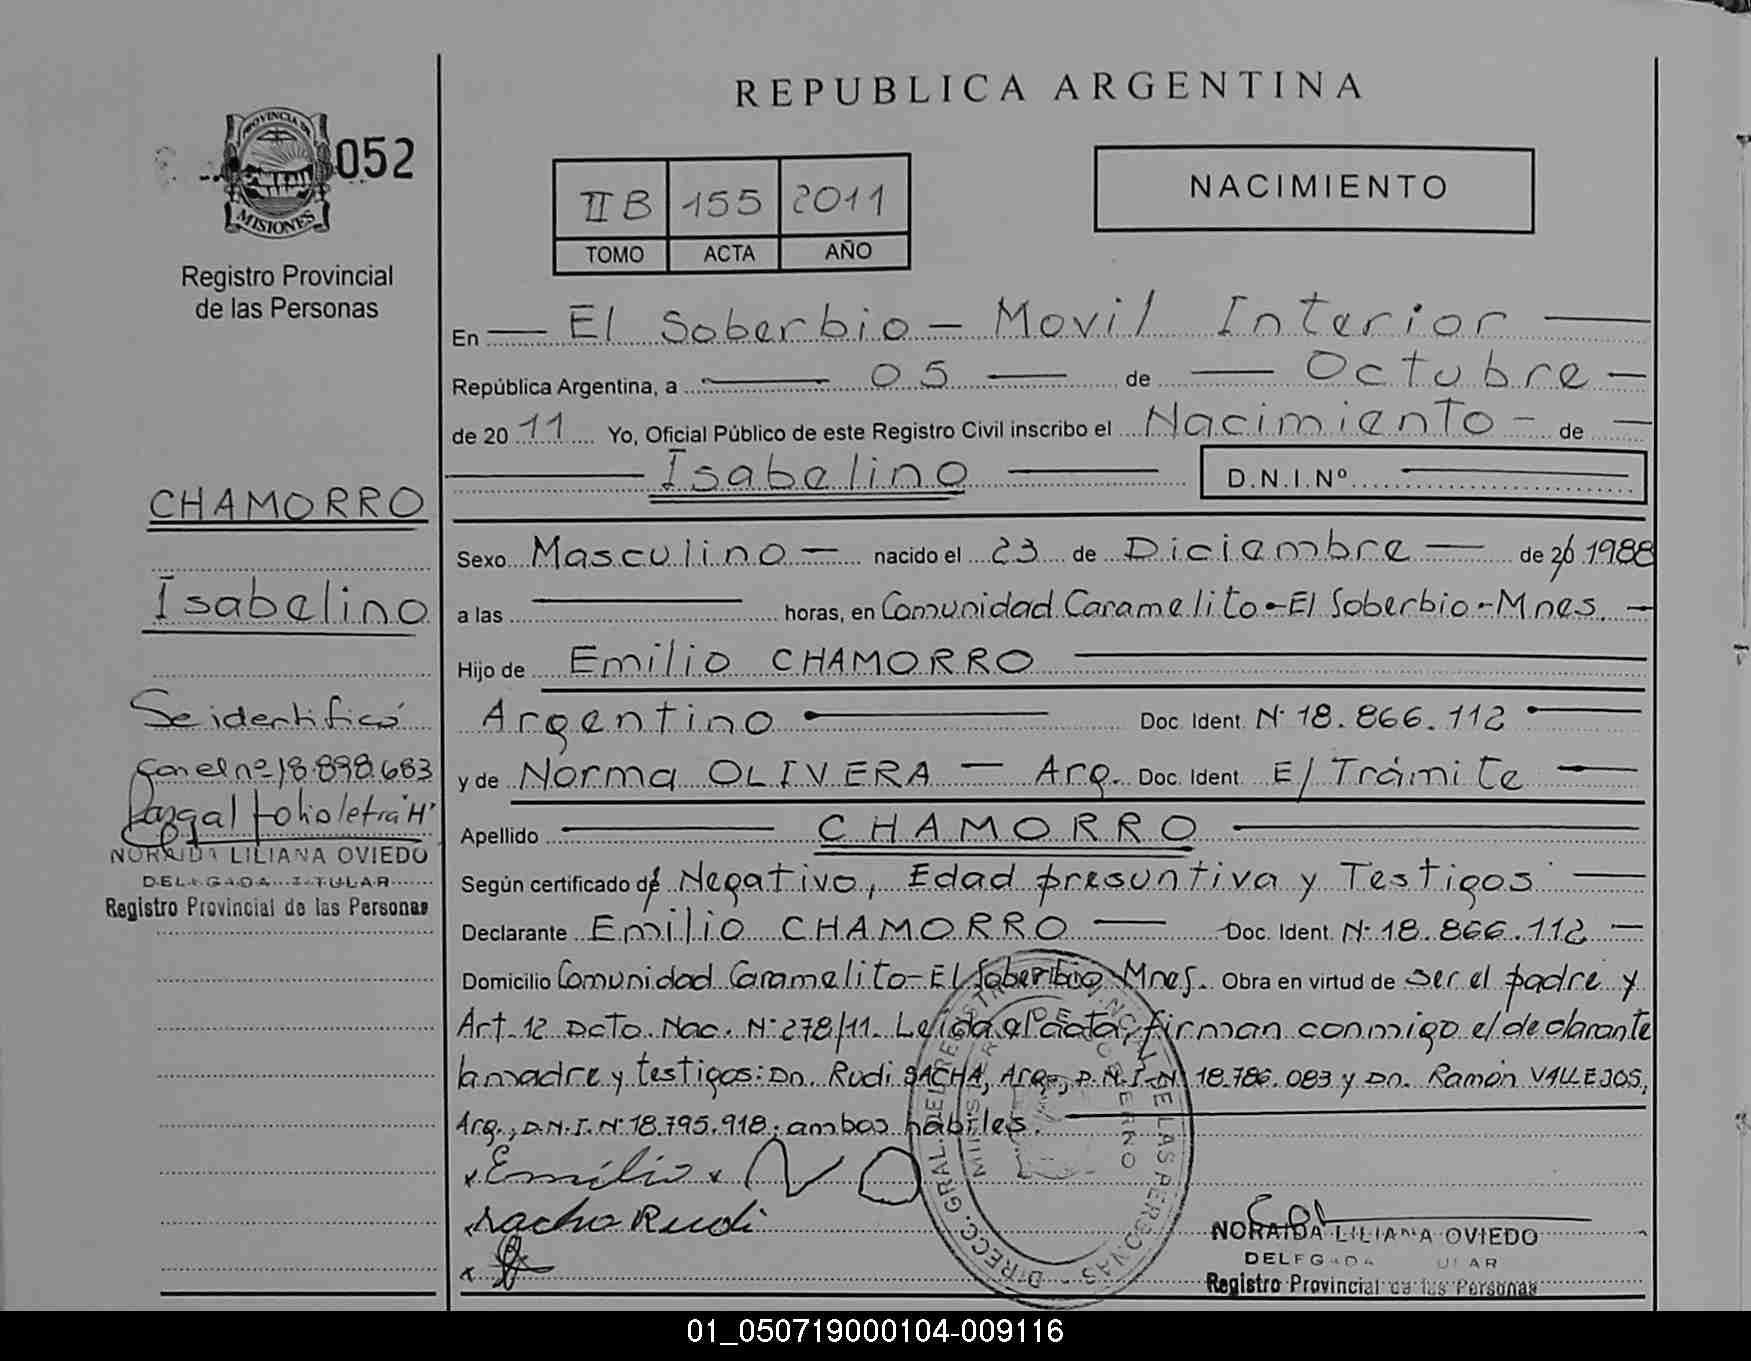 REPUBLICA ARGENTINA
PROVINCIA DE
MISIONES
052
Registro Provincial
de las Personas
II B 155 2011
TOMO ACTA AÑO
NACIMIENTO
En El Soberbio - Movil Interior
República Argentina, a 05 de Octubre
de 2011 Yo, Oficial Público de este Registro Civil inscribo el Nacimiento - de
Isabelino D.N.I.Nº
CHAMORRO
Isabelino
Se identificó
con el nº 18.898.683
folio letra "H"
NORAIDA LILIANA OVIEDO
DELEGADA TITULAR
Registro Provincial de las Personas
Sexo Masculino - nacido el 23 de Diciembre de 20 1988
a las horas, en Comunidad Caramelito - El Soberbio - Mnes.
Hijo de Emilio CHAMORRO
Argentino Doc. Ident. Nº 18.866.112
y de Norma OLIVERA - Arg. Doc. Ident. E/Trámite
Apellido CHAMORRO
Según certificado de Negativo, Edad presuntiva y Testigos
Declarante Emilio CHAMORRO Doc. Ident. Nº 18.866.112
Domicilio Comunidad Caramelito - El Soberbio Mnes. Obra en virtud de ser el padre y
Art. 12 Dcto. Nac. Nº 278/11. Leída el acta, firman conmigo el declarante
la madre y testigos: Dn. Rudi SACHA, Arg., D.N.I. Nº 18.786.083 y Dn. Ramón VALLEJOS,
Arg., D.N.I. Nº 18.795.918; ambos hábiles.
x Emilio x N O
Rudi
x
DIRECC. GRAL. DEL REGISTRO PROVINCIAL DE LAS PERSONAS
MINISTERIO DE GOBIERNO
NORAIDA LILIANA OVIEDO
DELEGADA TITULAR
Registro Provincial de las Personas
01_050719000104-009116